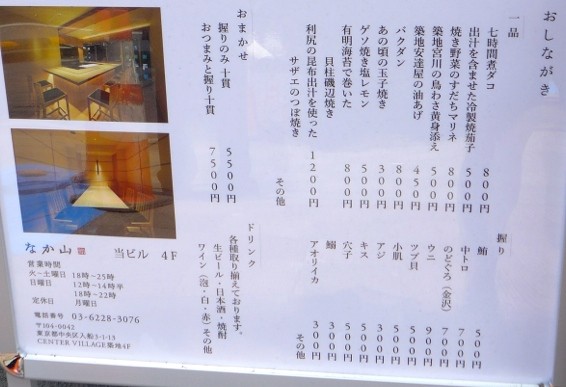 おしながき
一品
七時間煮ダコ 800円
出汁を含ませた冷製焼茄子 500円
焼き野菜のすだちマリネ 800円
築地宮川の鳥わさ黄身添え 500円
築地安達屋の油あげ 450円
バクダン 800円
あの頃の玉子焼き 300円
ゲソ焼き塩レモン 500円
有明海苔で巻いた
貝柱磯辺焼き 800円
利尻の昆布出汁を使った
サザエのつぼ焼き 1200円
その他
握り
鮪 500円
中トロ 700円
のどぐろ(金沢) 700円
ウニ 900円
ツブ貝 500円
小肌 500円
アジ 300円
キス 500円
穴子 500円
鰯 300円
アオリイカ 300円
その他
おまかせ
握りのみ 十貫 5500円
おつまみと握り十貫 7500円
ドリンク
各種取り揃えております。
生ビール・日本酒・焼酎
ワイン(泡・白・赤)その他
なか山 当ビル 4F
営業時間
火〜土曜日 18時〜25時
日曜日 12時〜14時半
18時〜22時
定休日 月曜日
電話番号 03-6228-3076
〒104-0042
東京都中央区入船3-1-13
CENTER VILLAGE築地4F